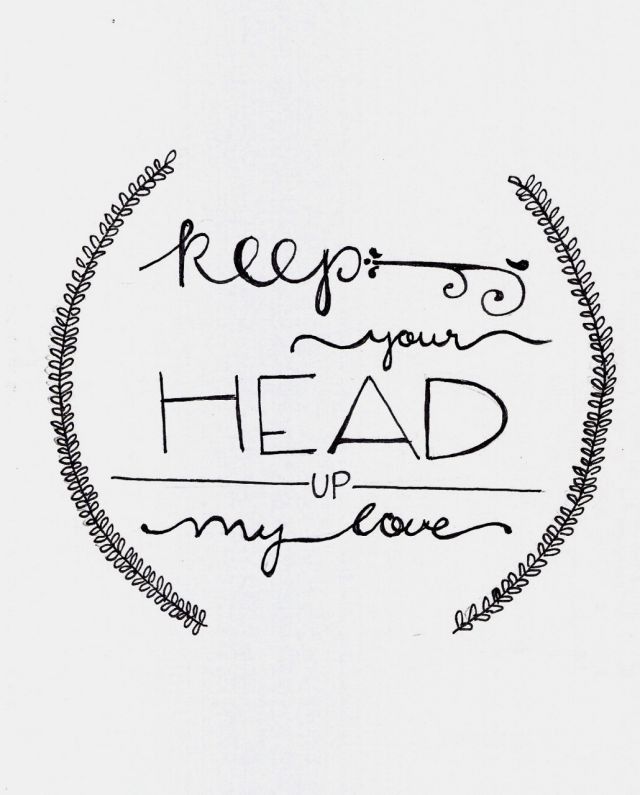 keep
your
HEAD
UP
my love